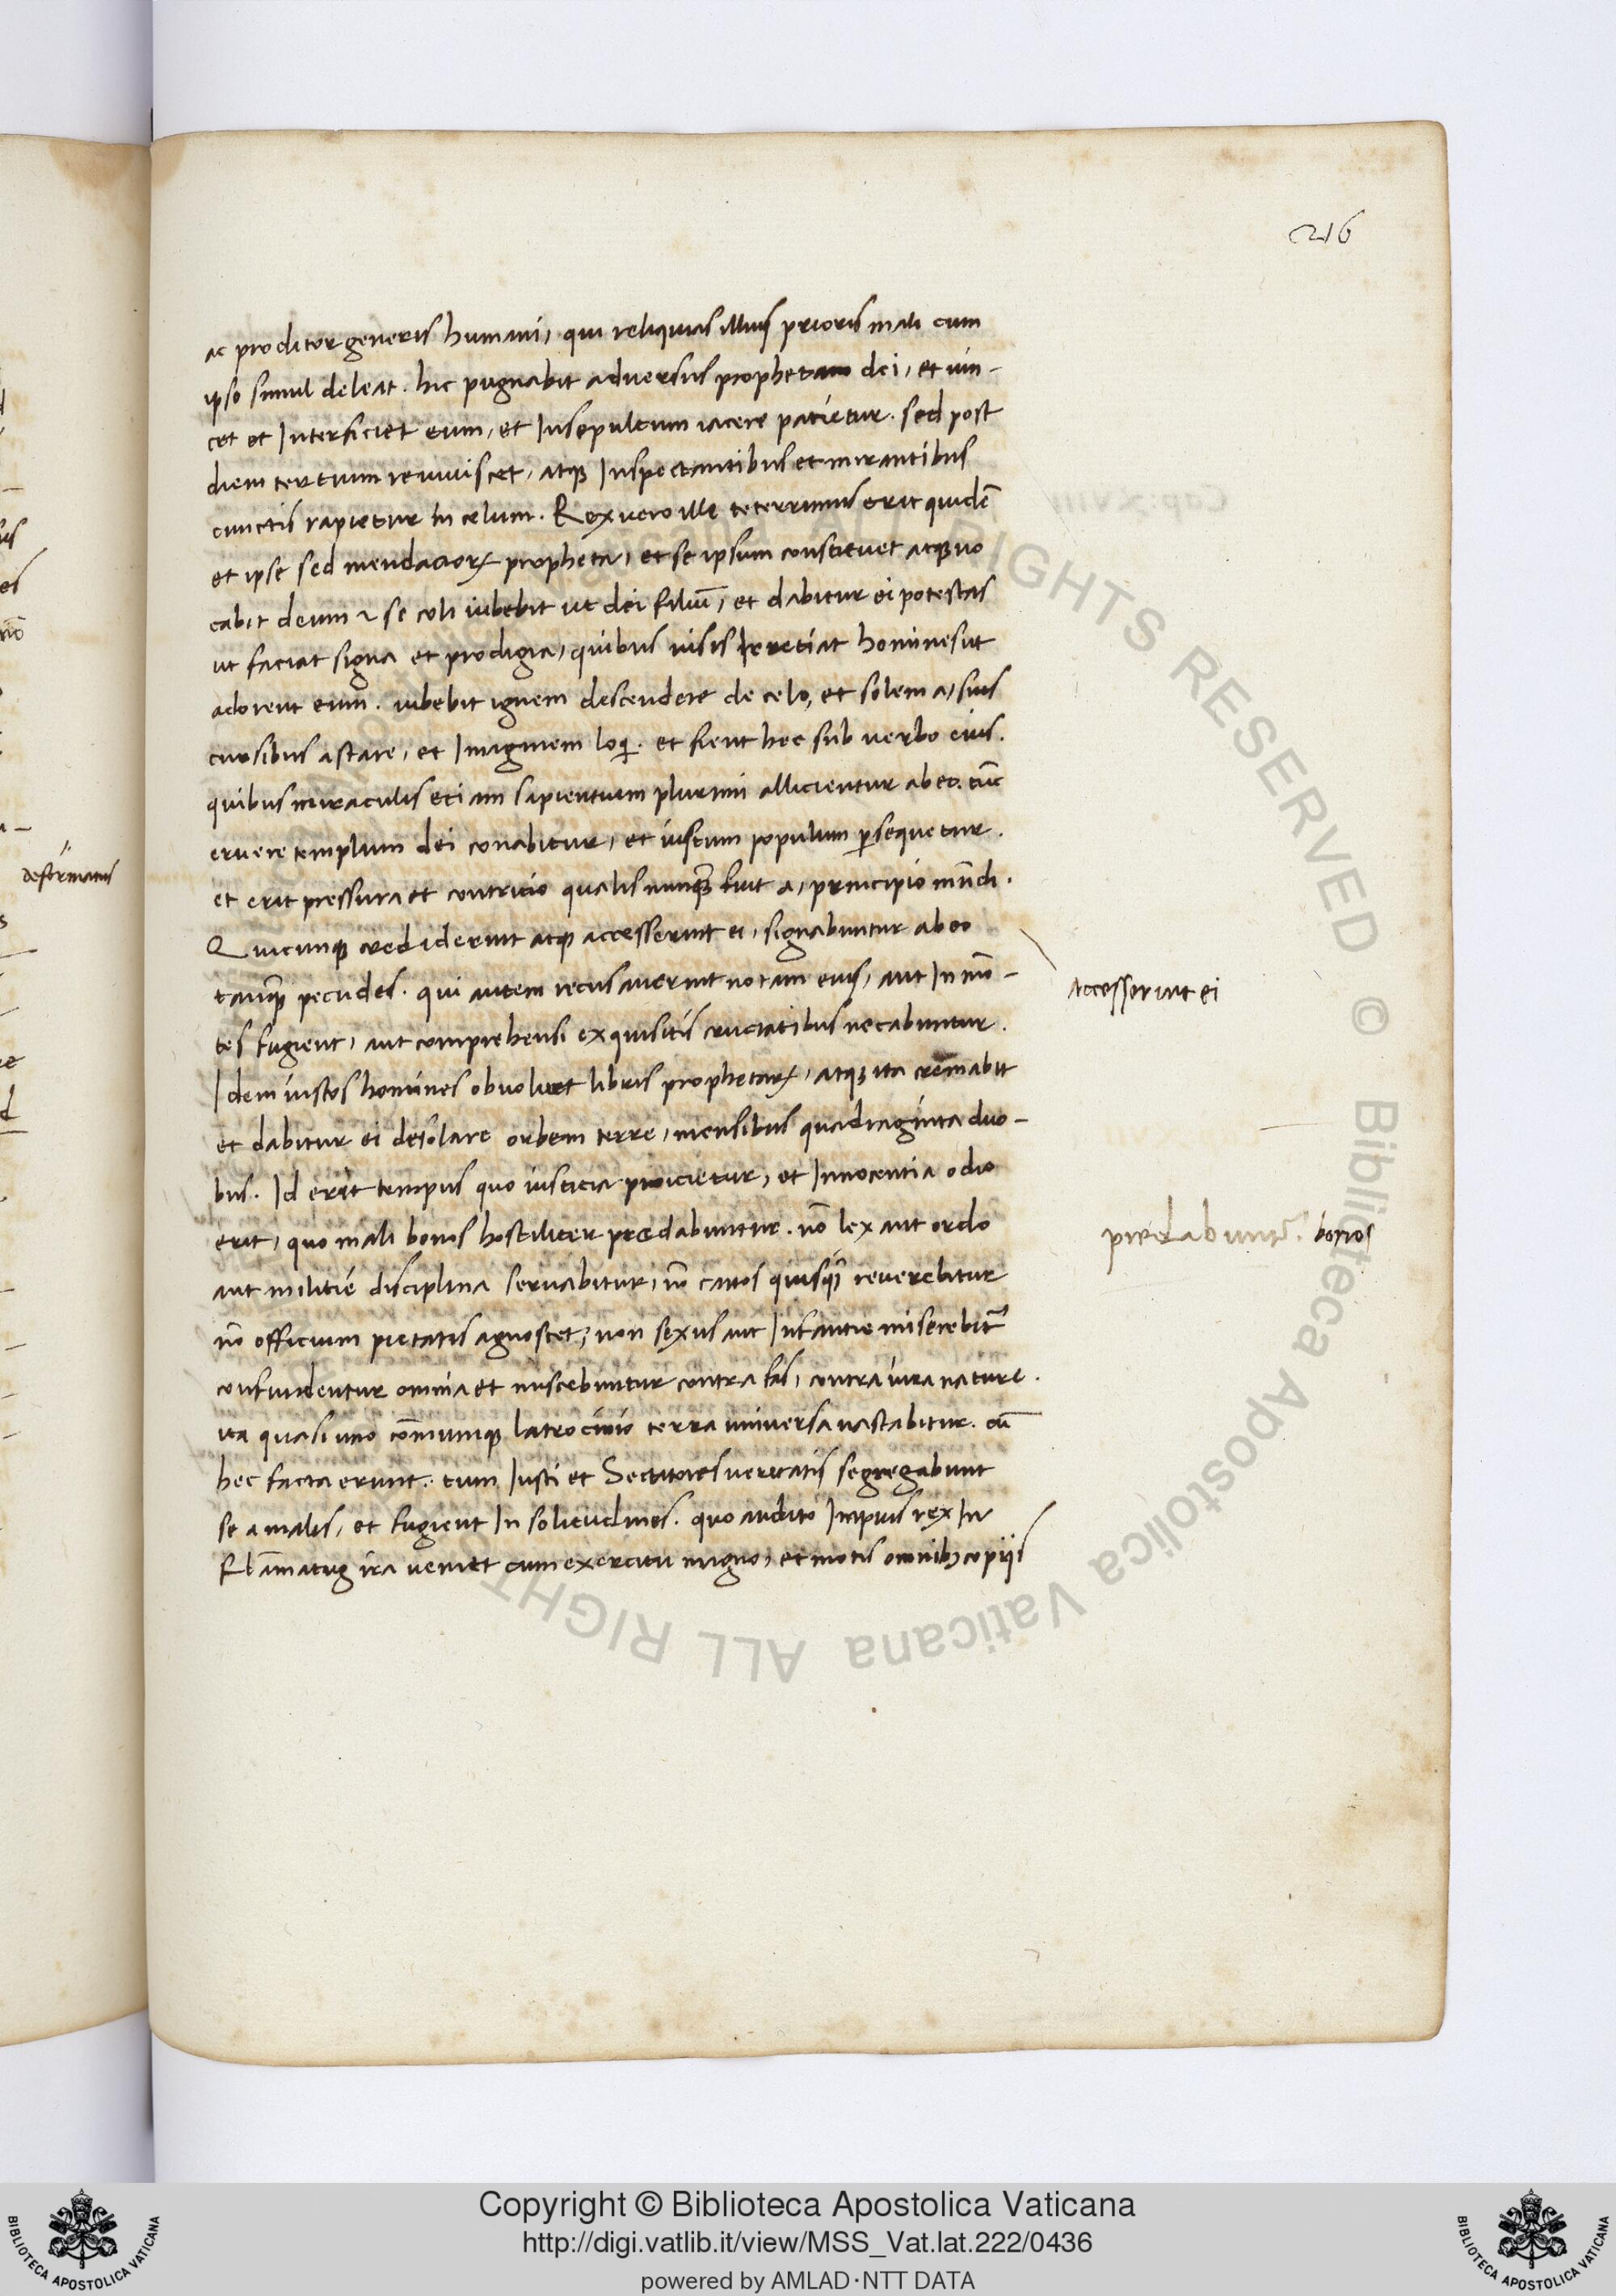 216
ac proditor generis humani, qui reliquias illius prioris mali cum
ipso simul deleat. hic pugnabit adversus prophetam dei, et uin-
cet et Interficiet eum, et Insepultum iacere patietur. sed post
diem tertium reuiuiscet, atqꝫ Inspectantibus et mirantibus
cunctis rapietur In celum. Rex uero ille teterrimus erit quidē
et ipse sed mendacioꝝ propheta, et se ipsum constituet atqꝫ uo
cabit deum ⁊ se coli iubebit ut dei filiū, et dabitur ei potestas
ut faciat signa et prodigia, quibus uisis Irretiat homines ut
adorent eum. iubebit ignem descendere de celo, et solem a, suis
cursibus astare, et Imaginem loqi. et fient hec sub uerbo eius.
quibus miraculis etiam sapientum plurimi allicientur ab eo. tūc
eruere templum dei conabitur, et iustum populum ꝑsequetur.
et erit pressura et contricio qualis nunqꝫ fuit a, principio mūdi.
Quicunqꝫ crediderint atqꝫ accesserint ei, signabuntur ab eo
tanqꝫ pecudes. qui autem recusauerint notam eius, aut In mō-
tes fugient, aut comprehensi exquisitis cruciatibus necabuntur.
Idem iustos homines obuoluet libris prophetaꝝ, atqꝫ ita cremabit
et dabitur ei desolare orbem terre, mensibus quadraginta duo-
bus. Id erit tempus quo iusticia proicietur, et Innocentia odio
erit, quo mali bonos hostiliter predabuntur. nō lex aut ordo
aut militie disciplina seruabitur, nō canos quisqꝫ reuerebitur
nō officium pietatis agnoscet, non sexus aut Infantie miserebitʳ
confundentur omnia et miscebuntur contra fas, contra iura nature.
ita quasi uno cōmuniqꝫ latrocinio terra uniuersa uastabitur. cū
hec facta erunt. tum Iusti et Sectatores ueritatis segregabunt
se a malis, et fugient In solitudines. quo audito Impius rex In
flāmatus ira veniet cum exercitu magno, et motis omnibꝫ copijs
accesserint ei
predabuntʳ. bonos
deformatus
Copyright © Biblioteca Apostolica Vaticana
http://digi.vatlib.it/view/MSS_Vat.lat.222/0436
powered by AMLAD·NTT DATA
BIBLIOTECA APOSTOLICA VATICANA
BIBLIOTECA APOSTOLICA VATICANA